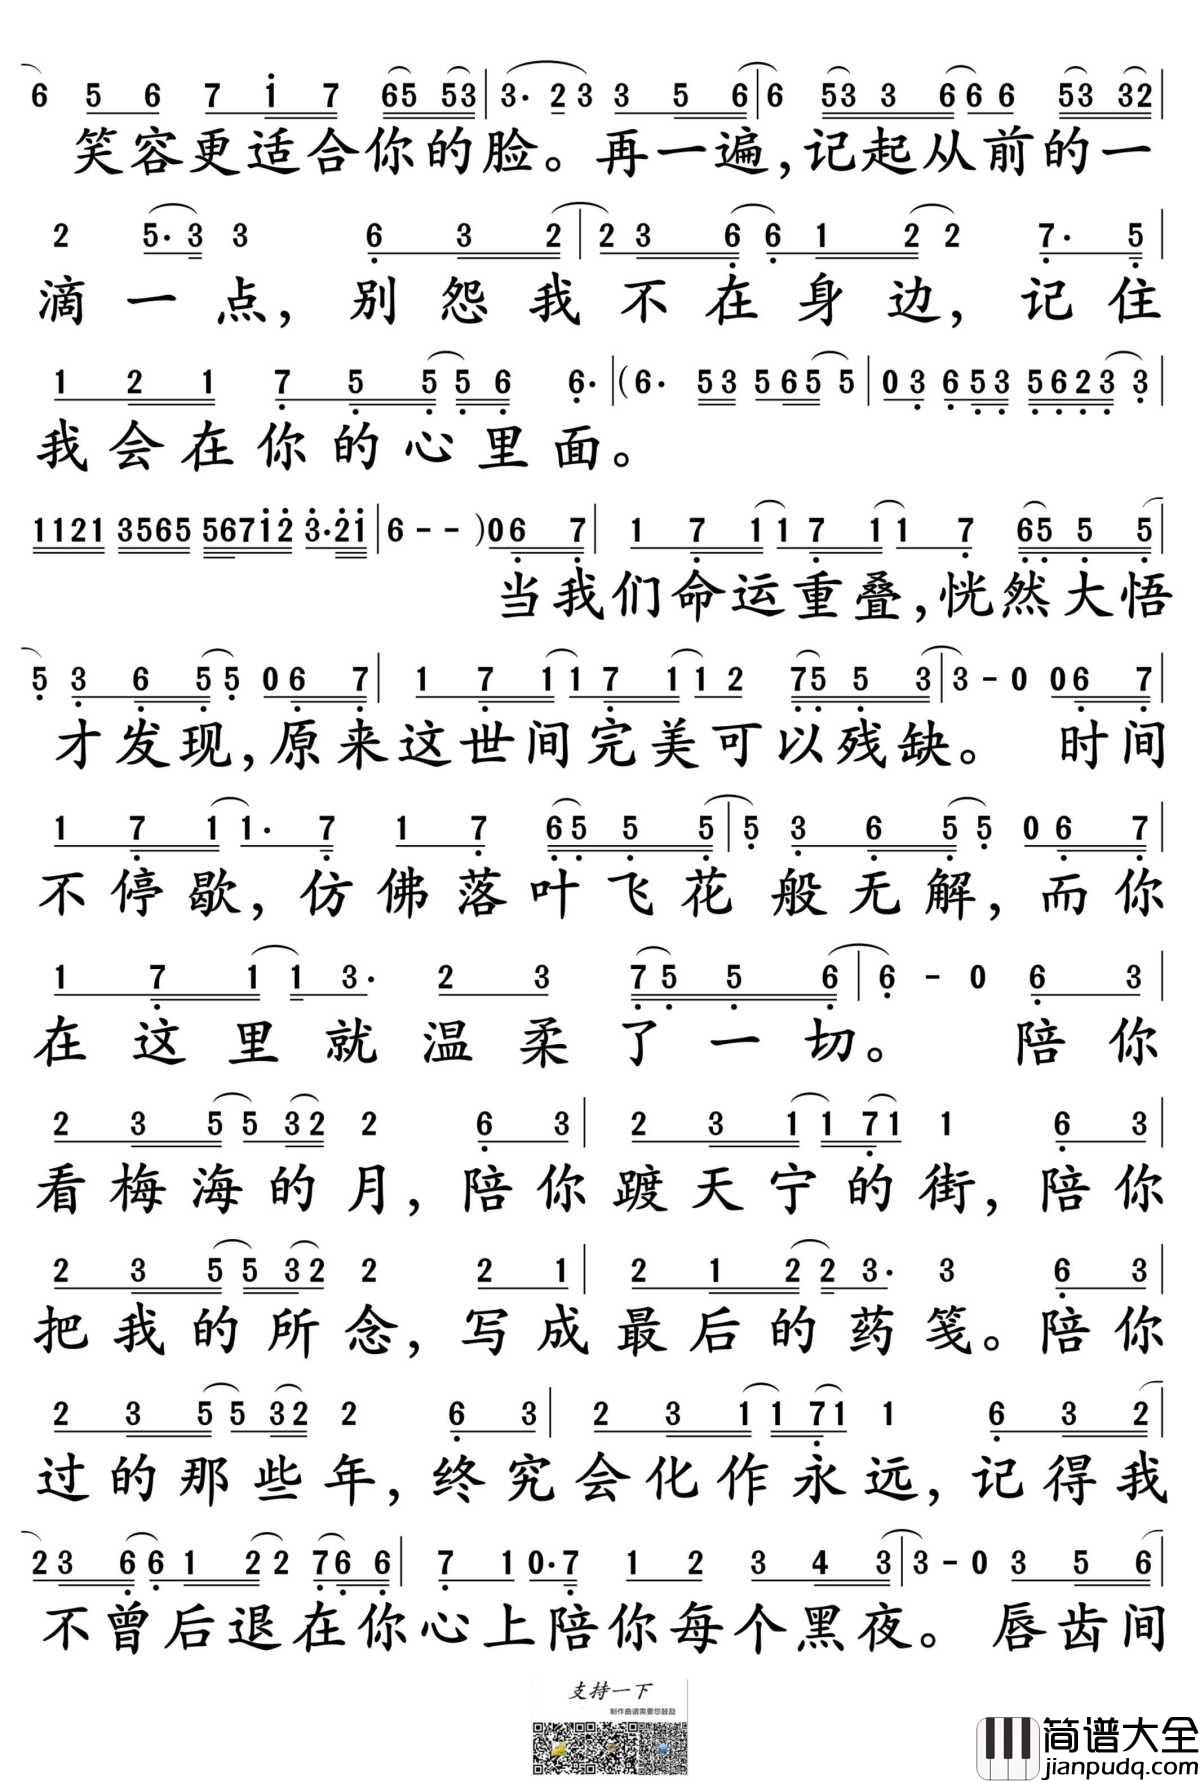 6 5 6 7 1 7 65 53 | 3· 2 3 3 5 6 | 6 53 3 6 6 6 53 32 |
笑容更适合你的脸。再一遍,记起从前的一
2 5· 3 3 6 3 2 | 2 3 6 6 1 2 2 7· 5 |
滴一点,别怨我不在身边,记住
1 2 1 7 5 5 5 6 6· | (6· 53 565 5 | 0 3 6 53 5623 3 |
我会在你的心里面。
1121 3565 5671̇2̇ 3̇·2̇1̇ | 6 - - ) 0 6 7 | 1 7 1 1 7 1 1 7 65 5 5 |
当我们命运重叠,恍然大悟
5 3 6 5 5 0 6 7 | 1 7 1 1 7 1 1 2 75 5 3 | 3 - 0 0 6 7 |
才发现,原来这世间完美可以残缺。时间
1 7 1 1· 7 1 7 65 5 5 | 5 3 6 5 5 0 6 7 |
不停歇,仿佛落叶飞花般无解,而你
1 7 1 1 3· 2 3 75 5 6 | 6 - 0 6 3 |
在这里就温柔了一切。陪你
2 3 5 5 32 2 6 3 | 2 3 1 1 71 1 6 3 |
看梅海的月,陪你踱天宁的街,陪你
2 3 5 5 32 2 2 1 | 2 1 2 2 3· 3 6 3 |
把我的所念,写成最后的药笺。陪你
2 3 5 5 32 2 6 3 | 2 3 1 1 71 1 6 3 2 |
过的那些年,终究会化作永远,记得我
2 3 6 6 1 2 2 7 6 6 | 7 1 0·7 1 2 3 4 3 | 3 - 0 3 5 6 |
不曾后退在你心上陪你每个黑夜。唇齿间
支持一下
制作曲谱需要您鼓励
简谱大全
jianpudq.com